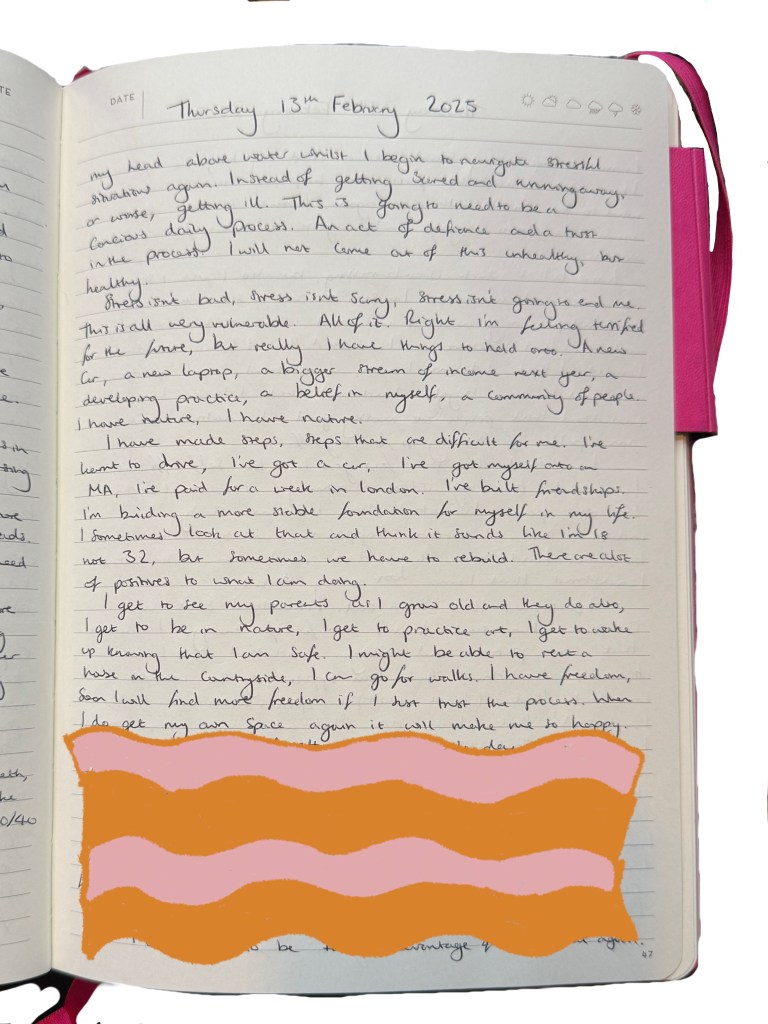 DATE
Thursday 13th February 2025
my head above water whilst I begin to navigate stressful
situations again. Instead of getting scared and running away,
or worse, getting ill. This is going to need to be a
concious daily process. An act of defiance and a trust
in the process I will not come out of this unhealthy, but
healthy.
Stress isn't bad, stress isn't scary, stress isn't going to end me.
This is all very vulnerable. All of it. Right I'm feeling terrified
for the future, but really I have things to hold onto. A new
car, a new laptop, a bigger stream of income next year, a
developing practice, a belief in myself, a community of people.
I have nature, I have nature.
I have made steps, steps that are difficult for me. I've
learnt to drive, I've got a car, I've got myself onto an
MA, I've paid for a week in london. I've built friendships.
I'm building a more stable foundation for myself in my life.
I sometimes look at that and think it sounds like I'm 18
not 32, but sometimes we have to rebuild. There are alot
of positives to what I am doing.
I get to see my parents as I grow old and they do also,
I get to be in nature, I get to practice art, I get to wake
up knowing that I am safe. I might be able to rent a
house in the countryside, I can go for walks. I have freedom,
soon I will find more freedom if I just trust the process. When
I do get my own space again it will make me so happy.
be
47